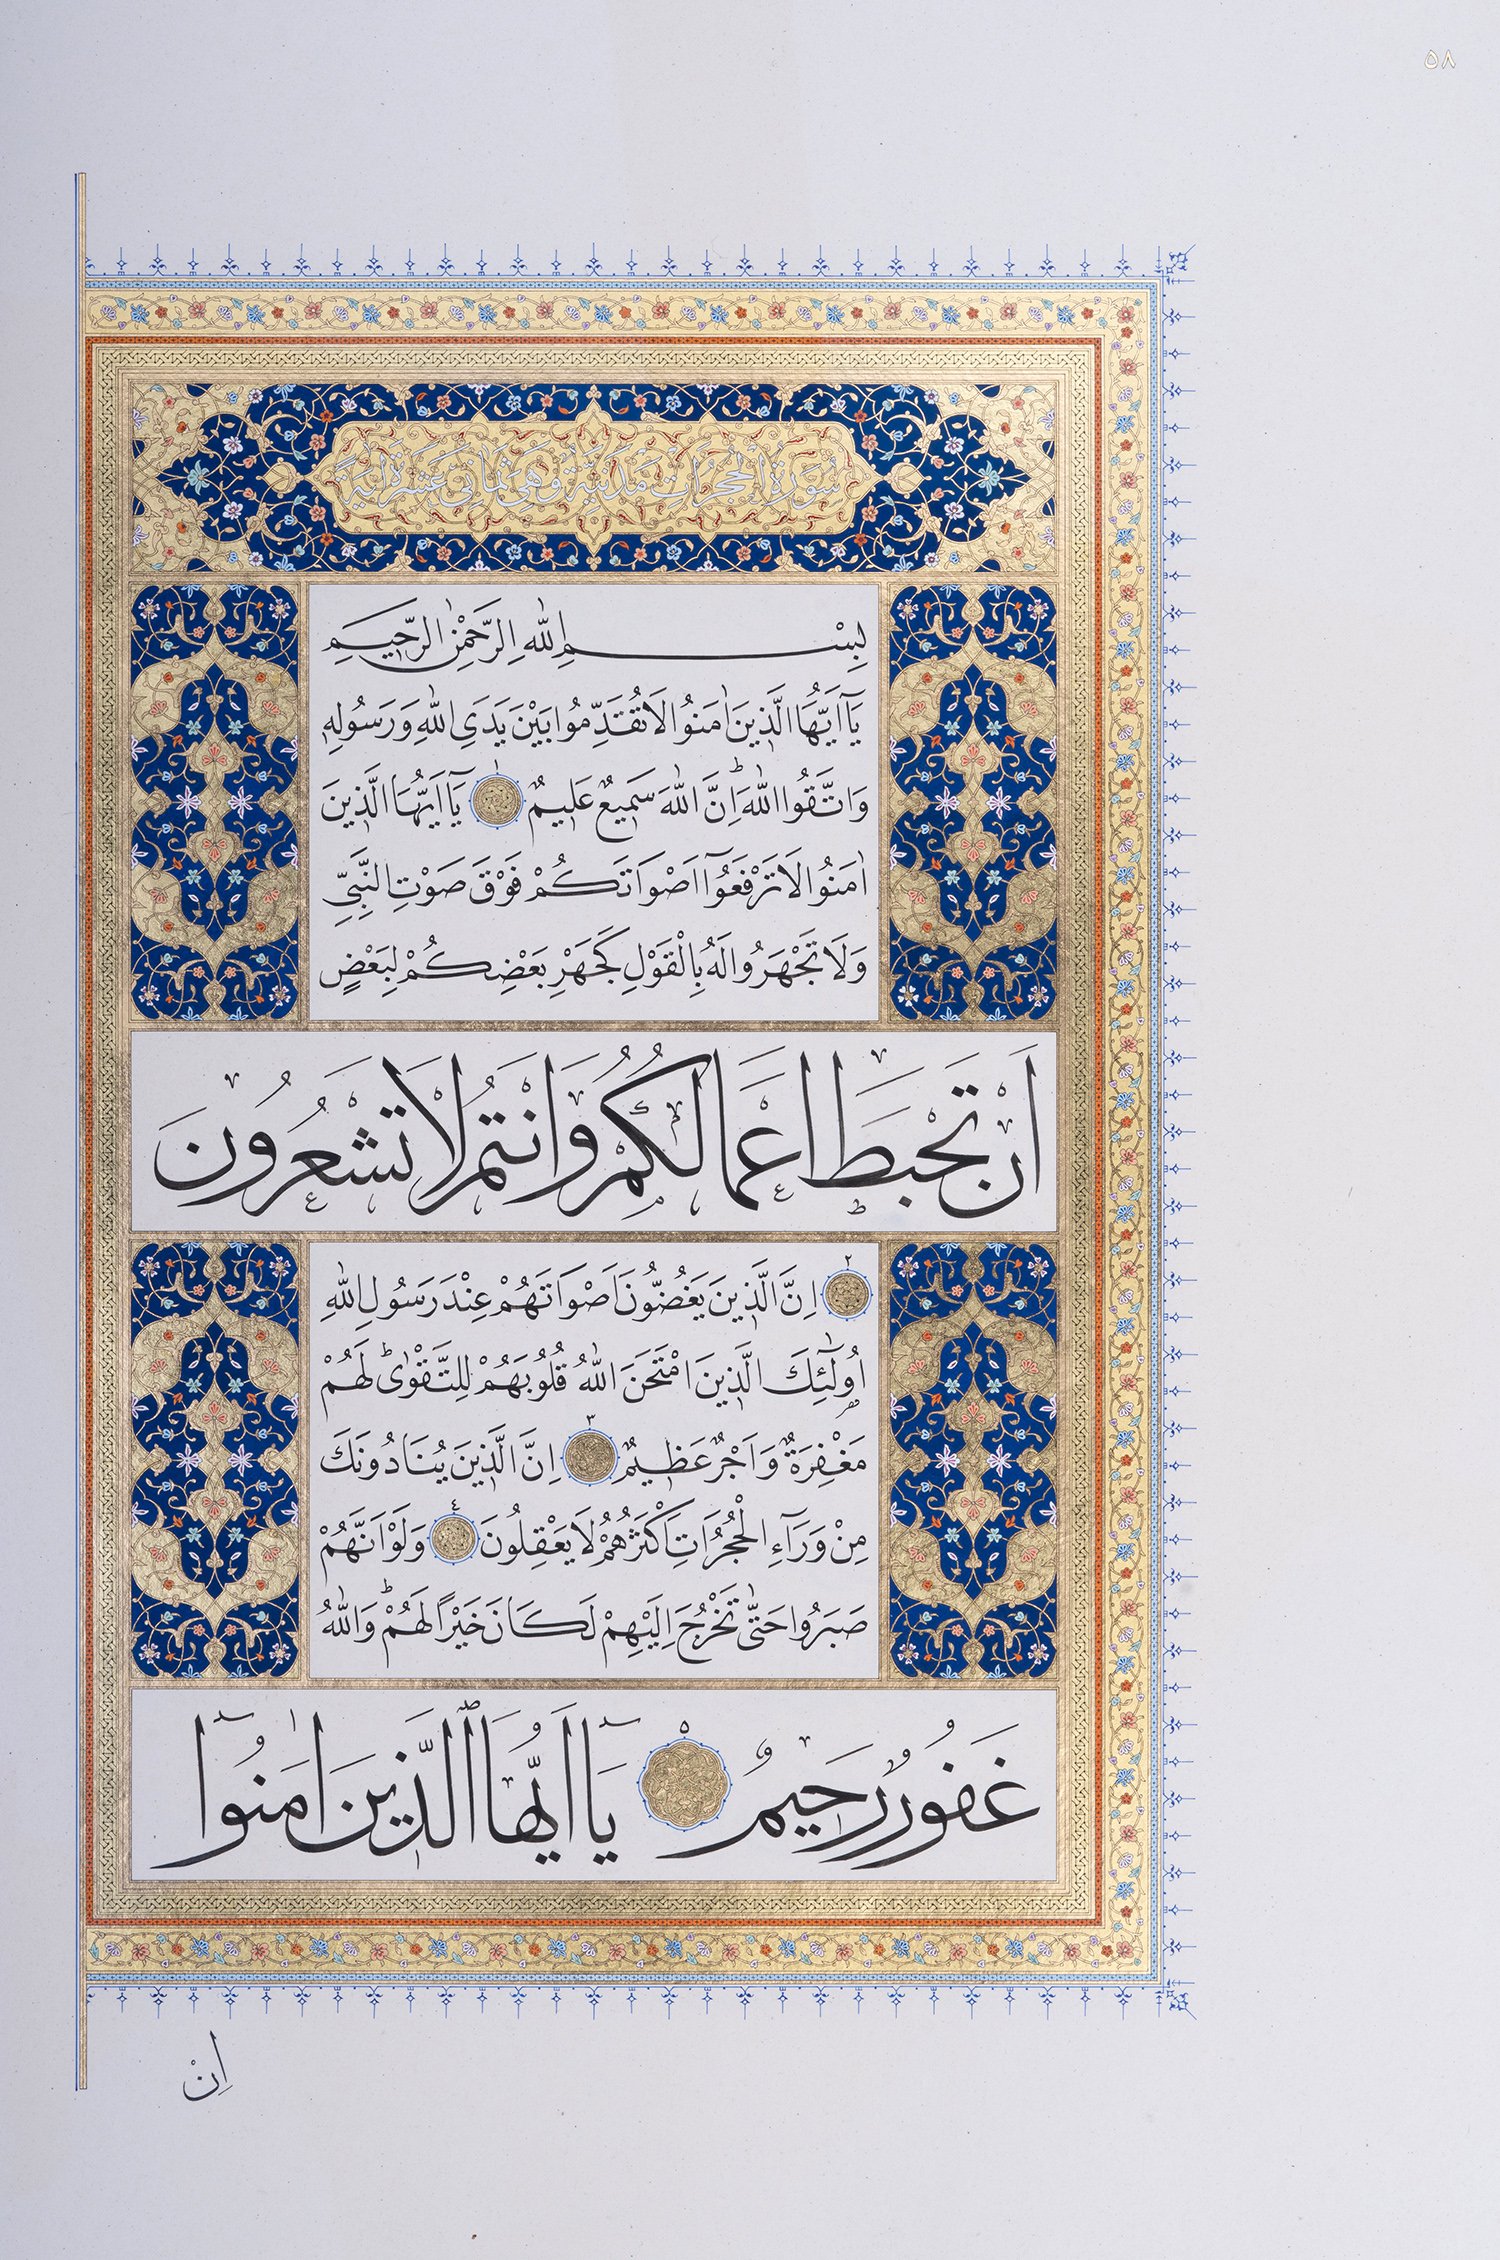 ٥٨
سُورَةُ الْحُجُرَاتِ مَدَنِيَّةٌ وَهِيَ ثَمَانِيَ عَشْرَةَ اٰيَةً
بِسْمِ اللّٰهِ الرَّحْمٰنِ الرَّحِيمِ
يَٓا اَيُّهَا الَّذِينَ اٰمَنُوا لَا تُقَدِّمُوا بَيْنَ يَدَىِ اللّٰهِ وَرَسُولِهِ
وَاتَّقُوا اللّٰهَ ط اِنَّ اللّٰهَ سَمِيعٌ عَلِيمٌ ١ يَٓا اَيُّهَا الَّذِينَ
اٰمَنُوا لَا تَرْفَعُوٓا اَصْوَاتَكُمْ فَوْقَ صَوْتِ النَّبِيِّ
وَلَا تَجْهَرُوا لَهُ بِالْقَوْلِ كَجَهْرِ بَعْضِكُمْ لِبَعْضٍ
اَنْ تَحْبَطَ اَعْمَالُكُمْ وَاَنْتُمْ لَا تَشْعُرُونَ
٢ اِنَّ الَّذِينَ يَغُضُّونَ اَصْوَاتَهُمْ عِنْدَ رَسُولِ اللّٰهِ
اُولٰٓئِكَ الَّذِينَ امْتَحَنَ اللّٰهُ قُلُوبَهُمْ لِلتَّقْوٰى ط لَهُمْ
مَغْفِرَةٌ وَاَجْرٌ عَظِيمٌ ٣ اِنَّ الَّذِينَ يُنَادُونَكَ
مِنْ وَرَٓاءِ الْحُجُرَاتِ اَكْثَرُهُمْ لَا يَعْقِلُونَ ٤ وَلَوْ اَنَّهُمْ
صَبَرُوا حَتّٰى تَخْرُجَ اِلَيْهِمْ لَكَانَ خَيْرًا لَهُمْ ط وَاللّٰهُ
غَفُورٌ رَحِيمٌ ٥ يَٓا اَيُّهَا الَّذِينَ اٰمَنُوٓا
اِنْ